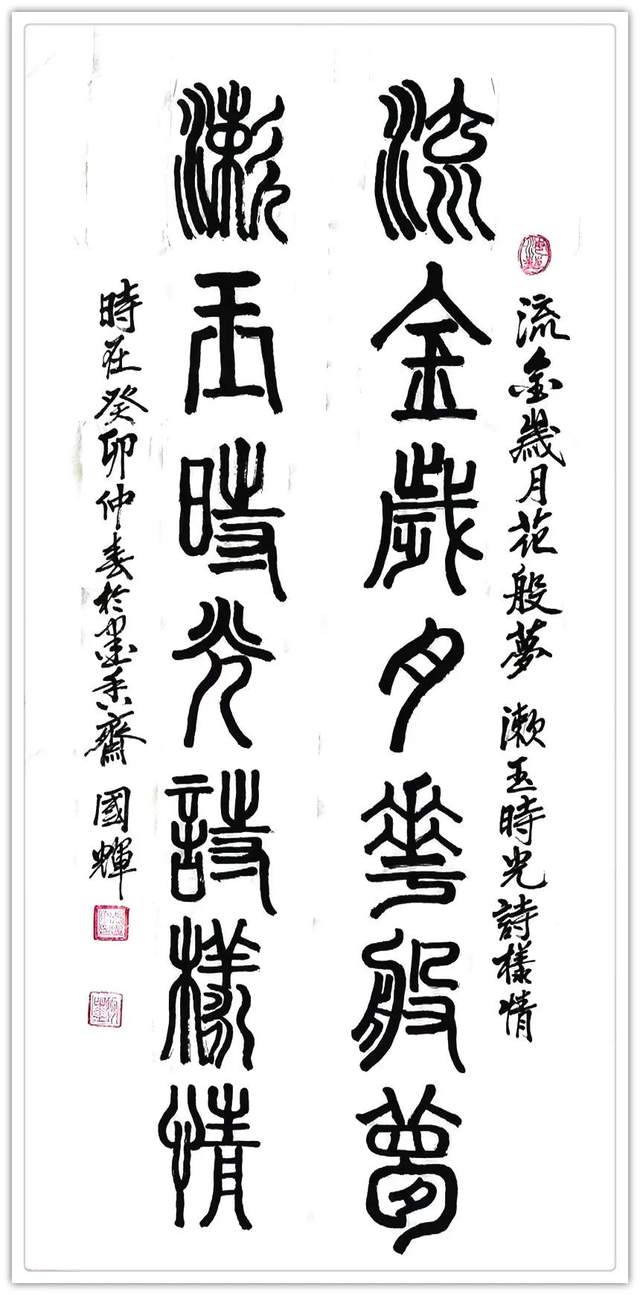 流金歲月花般夢 漱玉時光詩樣情
流金歲月華般夢
漱玉時光詩樣情
時在癸卯仲春於墨香齋 國輝